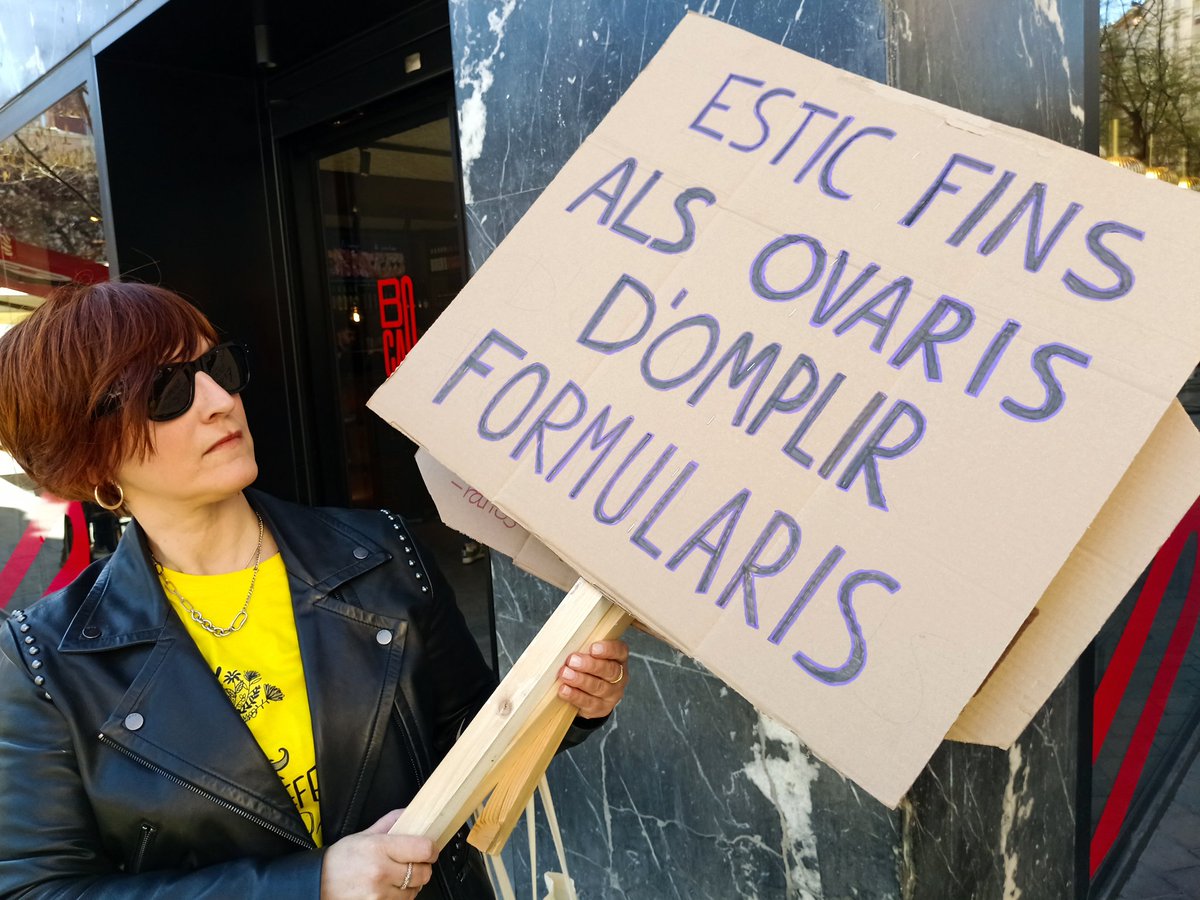 ESTIC FINS
ALS OVARIS
D'OMPLIR
FORMULARIS
BO
CA